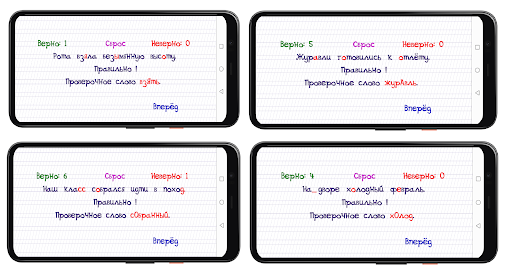 Верно: 1 Сброс Неверно: 0
Рота взяла безымянную высоту.
Правильно !
Проверочное слово взять.
Вперёд
Верно: 5 Сброс Неверно: 0
Журавли готовились к отлёту.
Правильно !
Проверочное слово журАвль.
Вперёд
Верно: 6 Сброс Неверно: 1
Наш класс собрался идти в поход.
Правильно !
Проверочное слово сОбранный.
Вперёд
Верно: 4 Сброс Неверно: 0
На_дворе холодный февраль.
Правильно !
Проверочное слово хОлод.
Вперёд